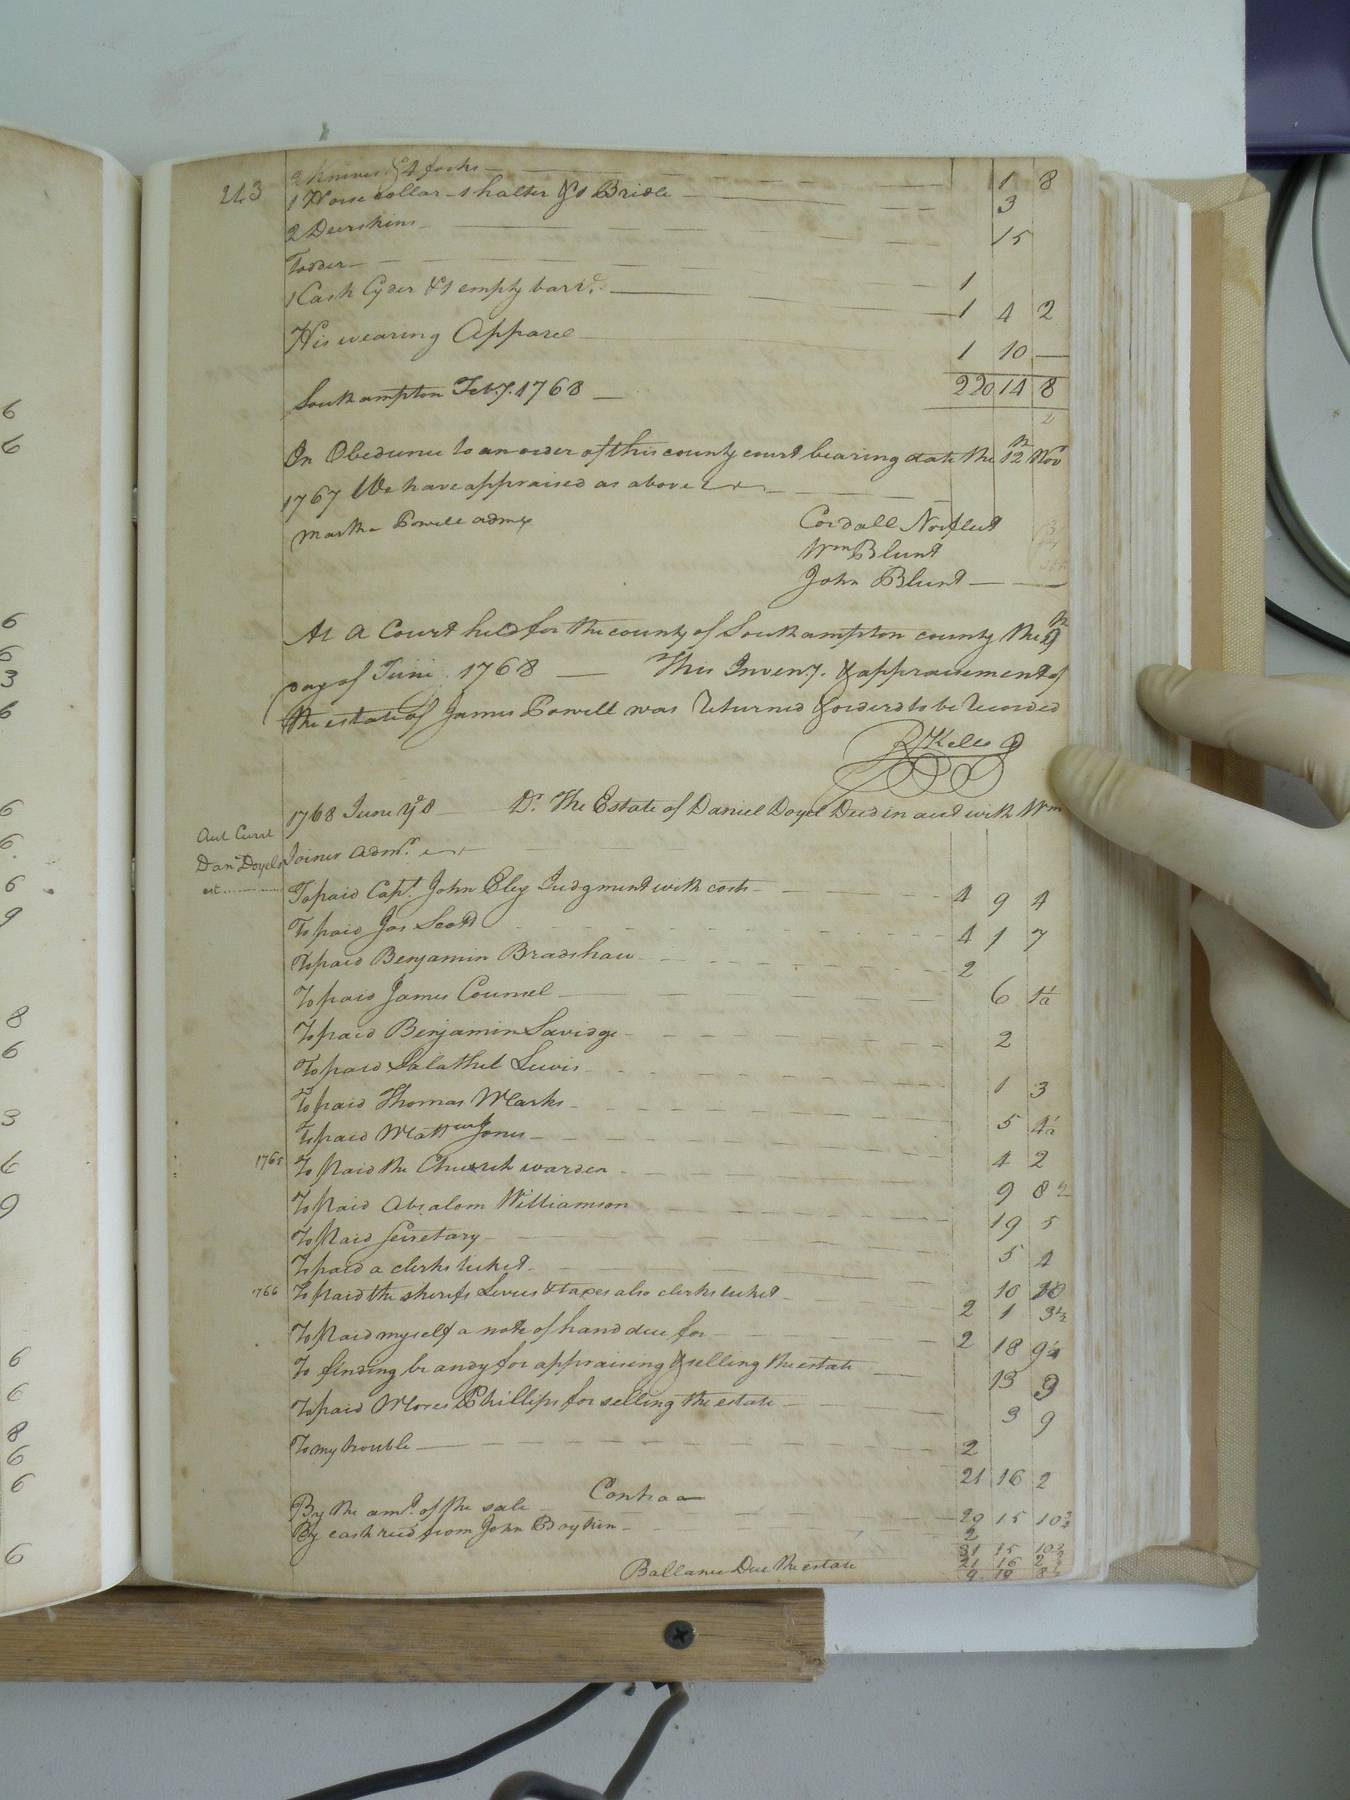 243
2 knives & 4 forks 1 8
1 Horse collar - 1 halter & 1 Bridle 3
2 Deerskins 15
Fodder 1
1 Cask Cyder & 1 empty barl. 1 4 2
His wearing Apparel 1 10 —
Southampton Feb.y. 1768 220 14 8
In Obedience to an order of this county court bearing date the 12th Nov
1767 We have appraised as above
Martha Powell admx
Cordall Norfleet
Wm Blunt
John Blunt
At a Court held for the county of Southampton county the 9th
Day of June 1768 — This Inven.y. & appraisement of
the estate of James Powell was Returned & orderd to be Recorded
R Kello
1768 June ye 8 Dr. The Estate of Daniel Doyel Decd in acct with Wm
Joiner admr.
Acct Curt
Danl Doyels
est
To paid Capt. John Eley Judgment with costs 4 9 4
To paid Jas Scott 4 1 7
To paid Benjamin Bradshaw 2
To paid James Counsel 6
To paid Benjamin Savidge 2
To paid Salathel Lewis 1 3
To paid Thomas Marks 5 4½
To paid Mattew Jones 4 2
To Paid the Church warden 9 8½
To Paid Absalom Williamson 19 5
To Paid Secretary 5 4
To paid a clerks ticket 10
1766 To Paid the sherifs Levies & taxes also clerks ticket 2 1 3½
To Paid myself a note of hand due for 2 18
To finding brandy for appraising & selling the estate 13 9
To paid Mores Phillips for selling the estate 3 9
To my trouble 2
21 16 2
Contra
By the amt. of the sale 29 15 10¾
By cash recd from John Boykin 2
31 15 10¾
21 16 2
Ballance Due the estate